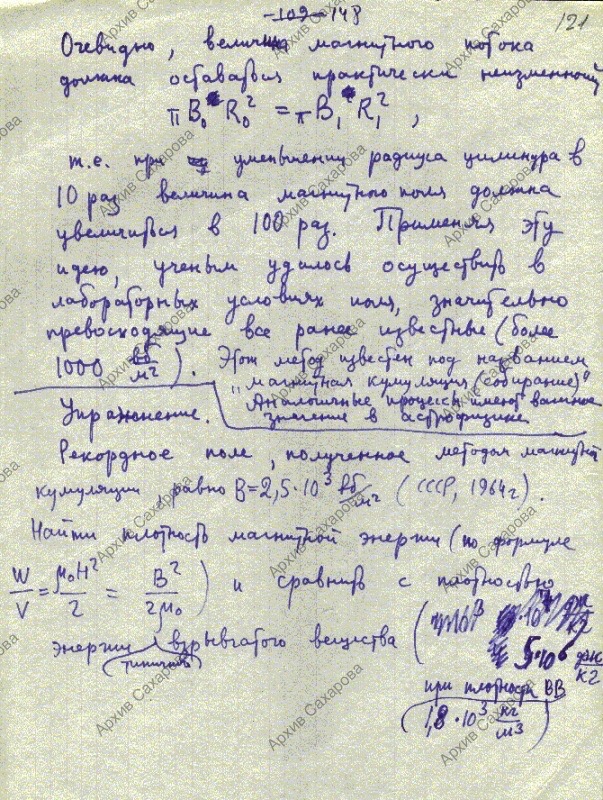 109 148
121
Очевидно, величина магнитного потока
должна оставаться практически неизменной
πB₀ R₀² = πB₁ R₁² ,
т.е. при уменьшении радиуса цилиндра в
10 раз величина магнитного поля должна
увеличиться в 100 раз. Применяя эту
идею, ученым удалось осуществить в
лабораторных условиях поля, значительно
превосходящие все ранее известные (более
1000 вб/м²). Этот метод известен под названием
„магнитная кумуляция (собирание)"
Аналогичные процессы имеют важное
значение в астрофизике
Упражнение.
Рекордное поле, полученное методом магнитной
кумуляции равно B=2,5·10³ вб/м² (СССР, 1964г).
Найти плотность магнитной энергии (по формуле
W/V = μ₀H²/2 = B²/2μ₀) и сравнить с плотностью
энергии типичного взрывчатого вещества (
5·10⁶ дж/кг
при плотности ВВ
1,8·10³ кг/м³)
Архив Сахарова